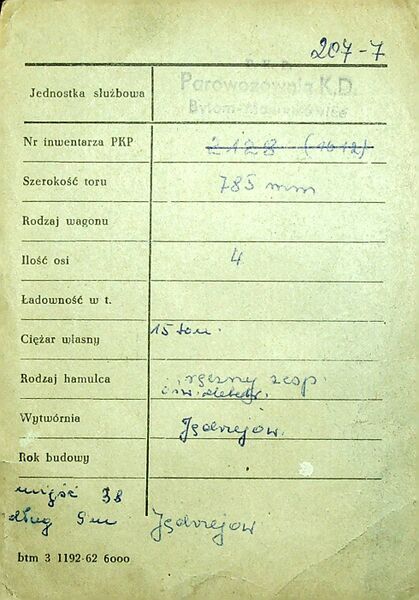 207-7
P.K.P.
Parowozownia K.D.
Jednostka służbowa
Bytom-Karb
Nr inwentarza PKP 2128 (1612)
Szerokość toru 785 mm
Rodzaj wagonu
Ilość osi 4
Ładowność w t.
Ciężar własny 15 ton.
Rodzaj hamulca ręczny zesp.
ośw. elektr.
Wytwórnia Jędrzejów.
Rok budowy
miejsc 38
dług 9 m Jędrzejów
btm 3 1192-62 6000